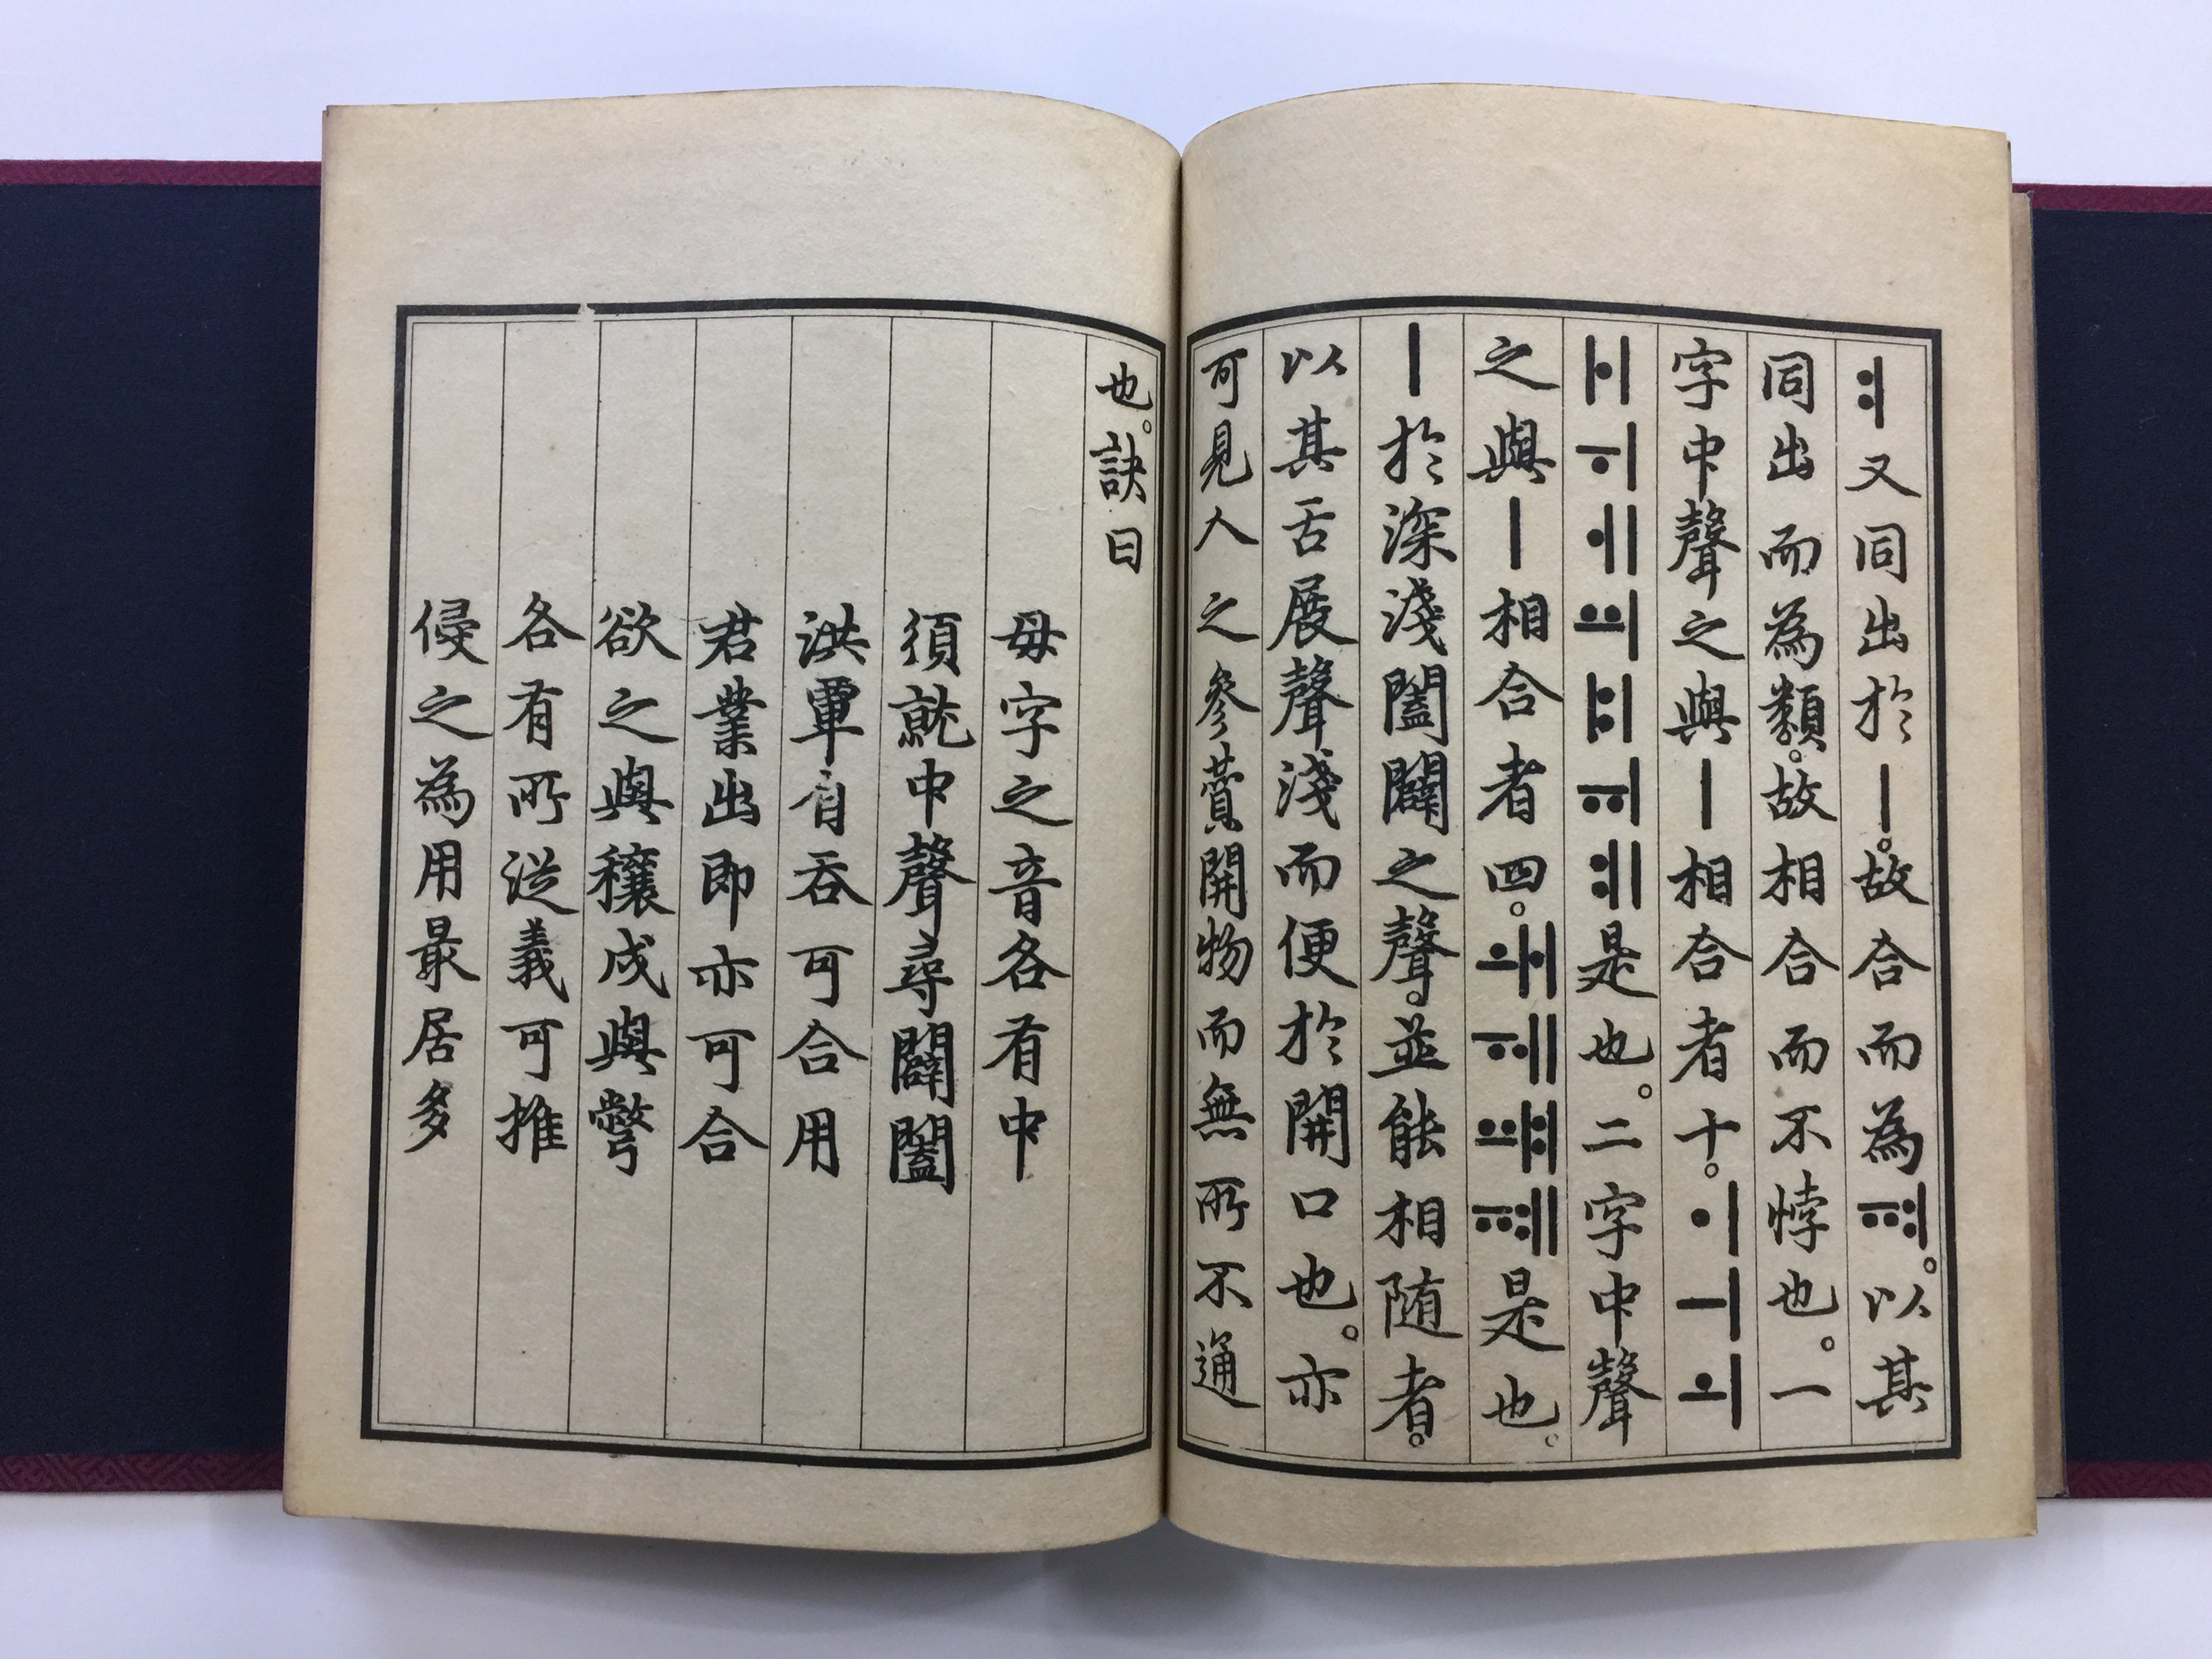 ㅕ又同出於ㅣ。故合而為ㆊ。以其
同出而為類。故相合而不悖也。一
字中聲之與ㅣ相合者十。ㆎㅢㅚ
ㅐㅟㅔㆉㅒㆌㅖ是也。二字中聲
之與ㅣ相合者四。ㅙㅞㆈㆋ是也。
ㅣ於深淺闔闢之聲。並能相随者。
以其舌展聲淺而便於開口也。亦
可見人之參贊開物而無所不通
也。訣曰
母字之音各有中
須就中聲尋闢闔
洪覃自吞可合用
君業出即亦可合
欲之與穰戌與彆
各有所從義可推
侵之為用最居多